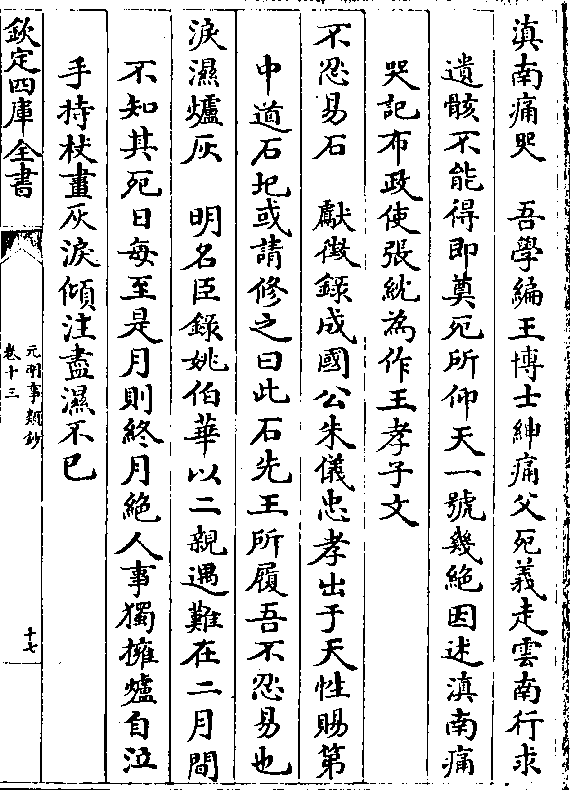 滇南痛哭　吾學編王博士紳痛父死義走雲南行求
遺骸不能得即奠死所仰天一號幾絕因述滇南痛
哭記布政使張紞為作王孝子文
不忍易石　獻徵錄成國公朱儀忠孝出于天性賜第
中道石圯或請修之曰此石先王所履吾不忍易也
淚濕爐灰　明名臣錄姚伯華以二親遇難在二月間
不知其死日每至是月則終月絕人事獨擁爐自泣
手持杖畫灰淚傾注盡濕不已
欽定四庫全書
元明事類鈔
卷十三
十七